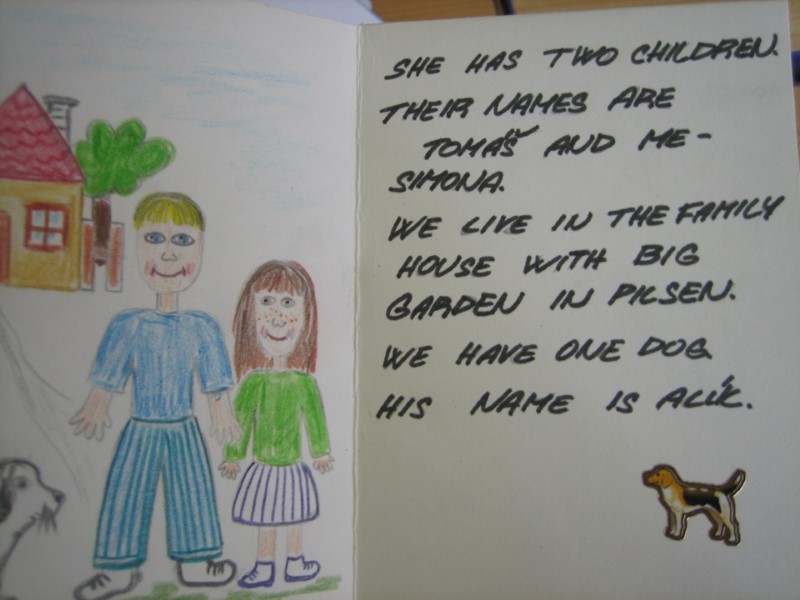 SHE HAS TWO CHILDREN.
THEIR NAMES ARE
TOMÁŠ AND ME-
SIMONA.
WE LIVE IN THE FAMILY
HOUSE WITH BIG
GARDEN IN PILSEN.
WE HAVE ONE DOG
HIS NAME IS ALÍK.